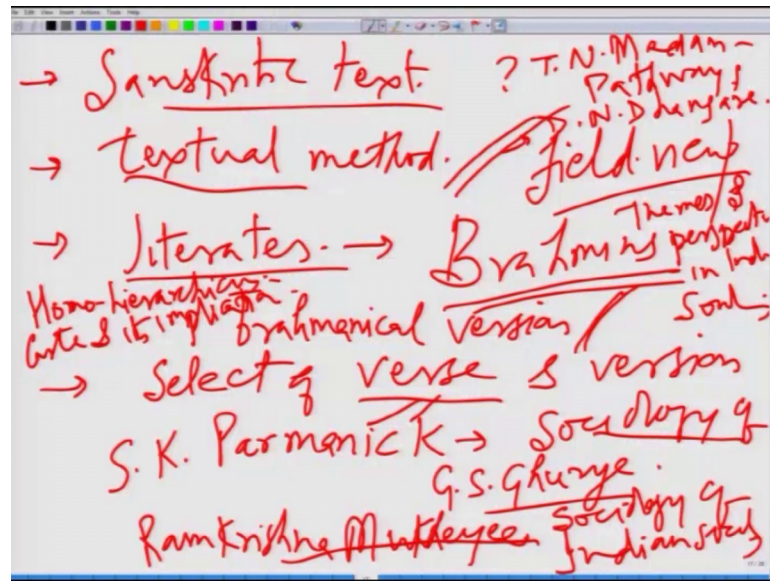 → Sanskritic text. ? T. N. Madan -
Pathways
D. N. Dhanagare.
→ textual method. field view
→ literates. → Brahmins
Themes & perspective
in Indian
Sociology
Homo-hierarchicus -
Caste & its implication -
brahmanical version
→ Select of verse & version
S. K. Parmanick → Sociology of
G. S. Ghurye.
RamKrishna Mukherjee Sociology of
Indian Sociology